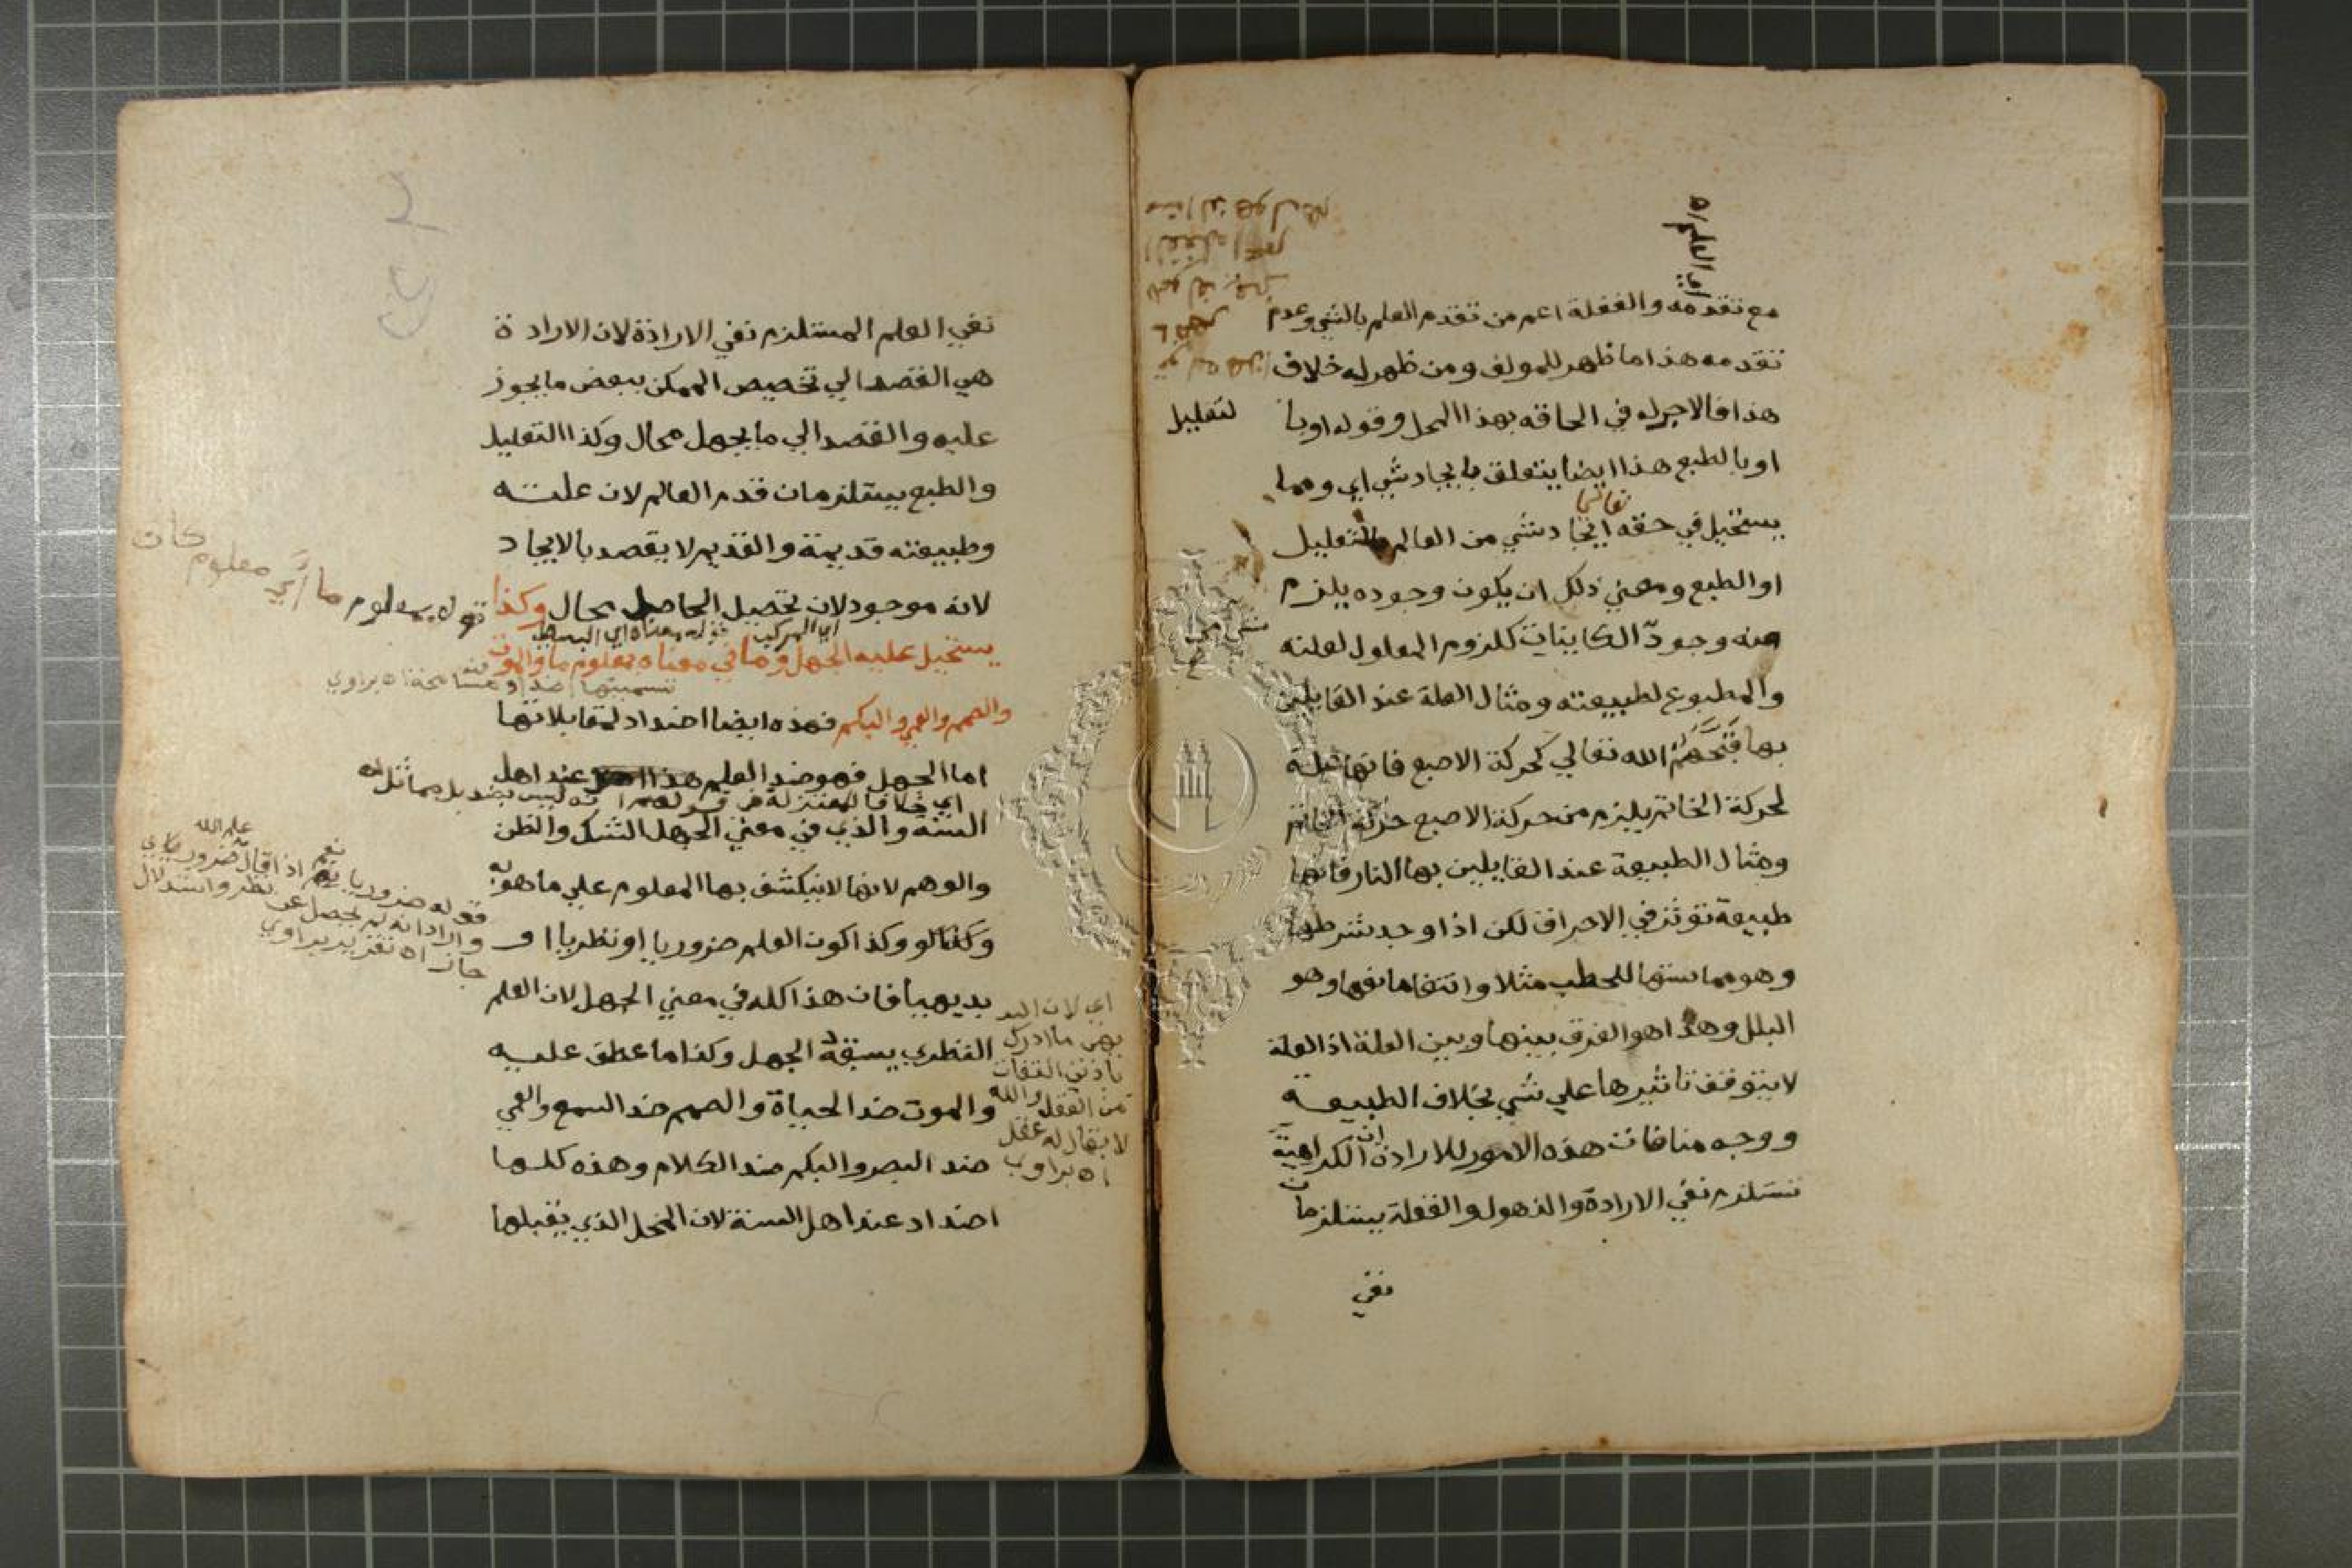 مع تقدمه والغفلة اعم من تقدم العلم بالشي وعدم
تقدمه هذا ما ظهر للمولف ومن ظهر له خلاف
هذا فالاجر له في الحاقه بهذا المحل وقوله او با لتعليل
او بالطبع هذا ايضا يتعلق بايجاد شي اي ومما
يستحيل في حقه تعالى ايجاد شي من العالم بالتعليل
او الطبع ومعني ذلك ان يكون وجوده يلزم
منه وجود الكاينات كلزوم المعلول لعلته
والمطبوع لطبيعته ومثال العلة عند القايلين
بها قبحهم الله تعالي كحركة الاصبع فانها علة
لحركة الخاتم يلزم من حركة الاصبع حركة الخاتم
ومثال الطبيعة عند القايلين بها النار فانها
طبيعة توثر في الاحراق لكن اذا وجد شرطها
وهو مماستها للحطب مثلا وانتفا مانعها وهو
البلل وهذا هو الفرق بينها وبين العلة اذ العلة
لا يتوقف تاثيرها علي شي بخلاف الطبيعة
ووجه منافات هذه الامور للارادة ان الكراهية
تستلزم نفي الارادة والذهول والغفلة يستلزمان
نفي
نفي العلم المستلزم نفي الارادة لان الارادة
هي القصد الي تخصيص الممكن ببعض ما يجوز
عليه والقصد الي ما يجهل محال وكذا التعليل
والطبع يستلزمان قدم العالم لان علته
وطبيعته قديمة والقديم لا يقصد بالايجاد
لانه موجود لان تحصيل الحاصل محال وكذا
قوله بمعلوم ما اي معلوم كان
اي المركب قوله معناه اي البسيط
يستحيل عليه الجهل وما في معناه بمعلوم ما والموت
تسميتها اضداد مسامحة اه براوي
والصمم والعمي والبكم فهذه ايضا اضداد لمقابلاتها
اما الجهل فهو ضد العلم هذا عند اهل
اي خلافا للمعتزلة من قولهم انه ليس بضد بل مماثل له
السنه والذي في معني الجهل الشك والظن
والوهم لانها لا ينكشف بها المعلوم علي ما هو به
وكذا لو وكذا كون العلم ضروريا او نظريا او
بديهيا فان هذا كله في معني الجهل لان العلم
النظري يسبقه الجهل وكذا ما عطف عليه
والموت ضد الحياة والصمم ضد السمع والعمي
ضد البصر والبكم ضد الكلام وهذه كلها
اضداد عند اهل السنة لان المحل الذي يقبلها
قوله ضروريا نعم اذا قال ضروريا اي
واراد انه لم يحصل عن نظر واستدلال
جاز اه تقرير براوي
اي لان البد
يهي ما ادرك
بادني التفات
من العقل والله
لا يقال له عقل
اه براوي